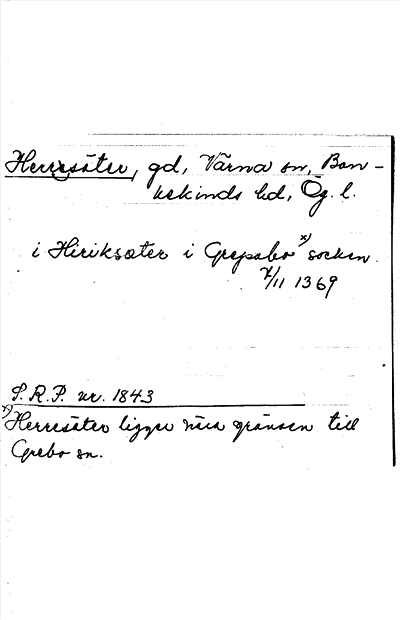 Herresäter, gd, Värna sn, Ban-
kekinds hd, Ög. l.
i Hiriksæter i Grepabo x) socken.
7/11 1369
S.R.P. nr. 1843
x) Herresäter ligger nära gränsen till
Grebo sn.